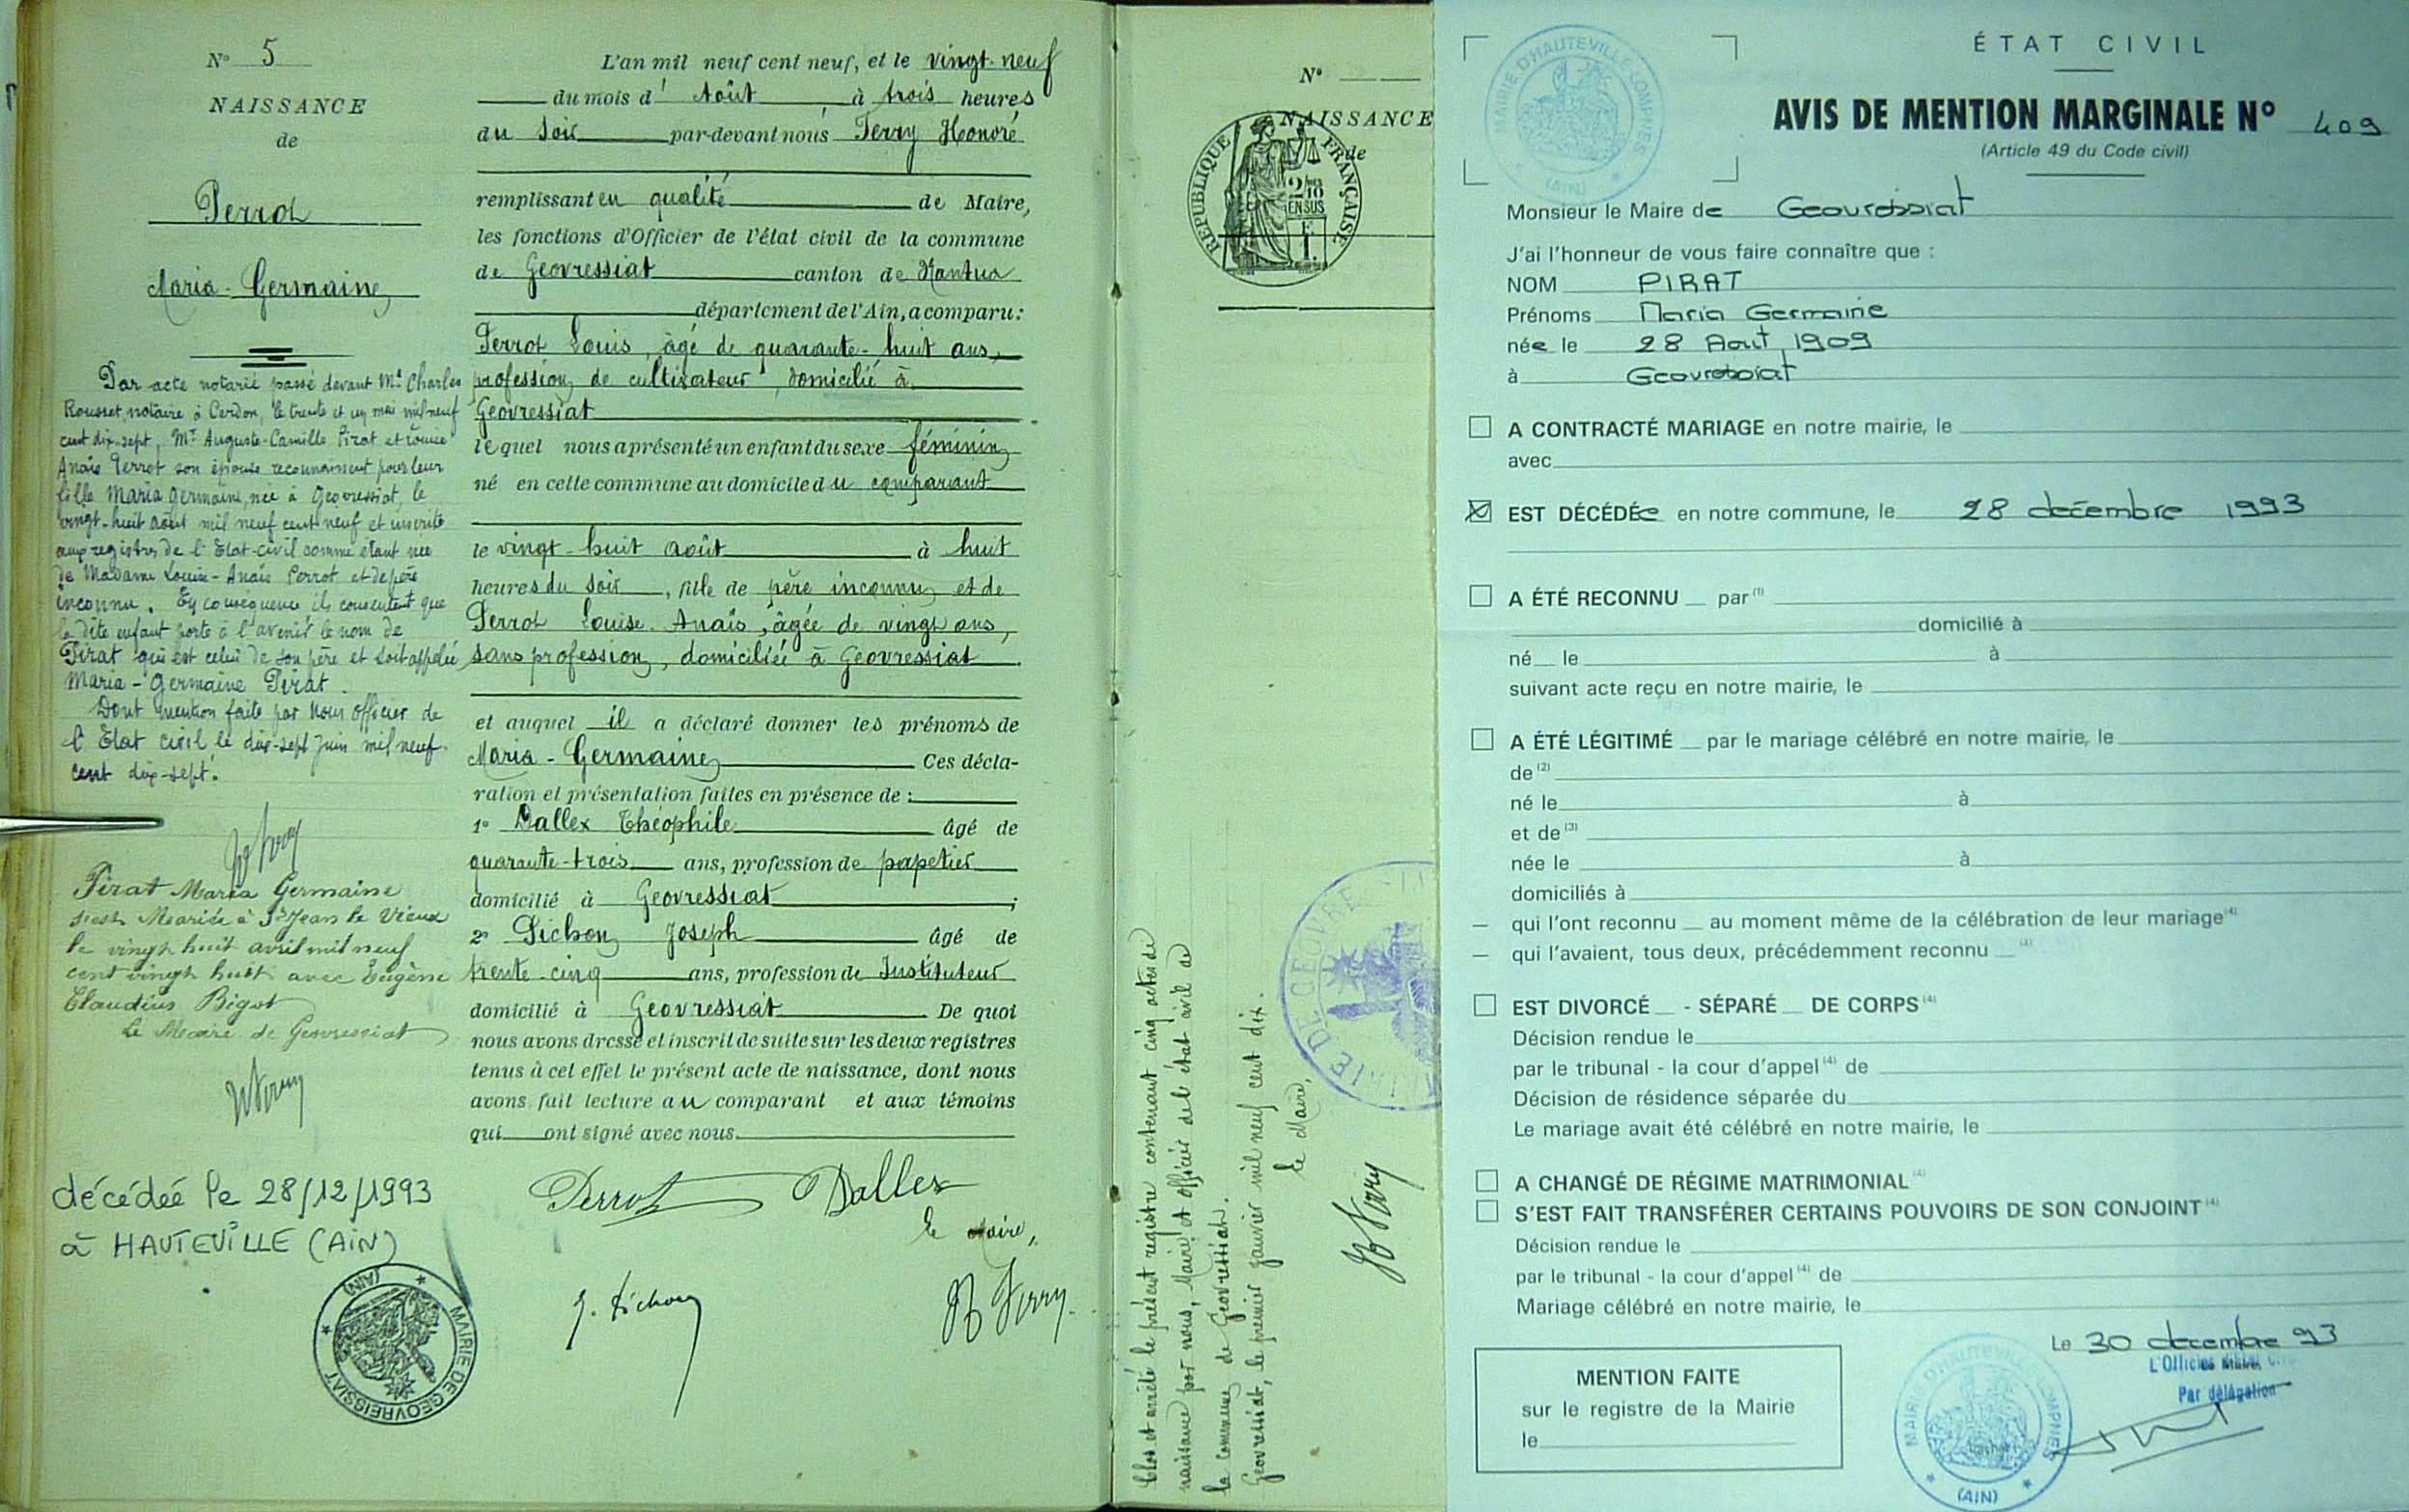 N° 5
NAISSANCE
de
Perrot
Maria-Germaine
Par acte notarié passé devant Me Charles
Rousset notaire à Cerdon, le trente et un mai mil neuf
cent dix-sept, Mr Auguste-Camille Pirat et Louise
Anaïs Perrot son épouse reconnaissent pour leur
fille Maria Germaine, née à Geovressiat, le
vingt-huit août mil neuf cent neuf et inscrite
aux registres de l'Etat-civil comme étant née
de Madame Louise-Anaïs Perrot et de père
inconnu. En conséquence ils consentent que
la dite enfant porte à l'avenir le nom de
Pirat qui est celui de son père et soit appelée
Maria-Germaine Pirat.
Dont mention faite par Nous officier de
l'Etat civil le dix-sept Juin mil neuf
cent dix-sept.
Pirat Maria Germaine
s'est Mariée à St Jean le Vieux
le vingt huit avril mil neuf
cent vingt huit avec Eugène
Claudius Bigot
Le Maire de Geovressiat
décédée le 28/12/1993
à HAUTEVILLE (AIN)
MAIRIE DE GEOVREISSIAT
(AIN)
L'an mil neuf cent neuf, et le vingt-neuf
du mois d' Août à trois heures
du soir par-devant nous Ferry Honoré
remplissant en qualité de Maire,
les fonctions d'Officier de l'état civil de la commune
de Geovressiat canton de Nantua
département de l'Ain, a comparu:
Perrot Louis, âgé de quarante-huit ans,
profession de cultivateur, domicilié à
Geovressiat
lequel nous a présenté un enfant du sexe féminin
né en cette commune au domicile du comparant
le vingt-huit août à huit
heures du soir, fille de père inconnu et de
Perrot Louise-Anaïs, âgée de vingt ans,
sans profession, domiciliée à Geovressiat
et auquel il a déclaré donner les prénoms de
Maria-Germaine Ces décla-
ration et présentation faites en présence de:
1° Dallex Théophile âgé de
quarante-trois ans, profession de papetier
domicilié à Geovressiat;
2° Pichon Joseph âgé de
trente-cinq ans, profession de Instituteur
domicilié à Geovressiat De quoi
nous avons dressé et inscrit de suite sur les deux registres
tenus à cet effet le présent acte de naissance, dont nous
avons fait lecture au comparant et aux témoins
qui ont signé avec nous.
Perrot Dallex
le Maire,
J. Pichon
H Ferry
N°
NAISSANCE
de
REPUBLIQUE FRANÇAISE
2/10
EN SUS
Clos et arrêté le présent registre contenant cinq actes de
naissance par nous, Maire et officier de l'état civil de
la commune de Geovressiat.
Geovressiat, le premier janvier mil neuf cent dix.
le Maire,
H Ferry
MAIRIE DE GEOVRE
MAIRIE D'HAUTEVILLE-LOMPNES
(AIN)
ÉTAT CIVIL
AVIS DE MENTION MARGINALE N° 409
(Article 49 du Code civil)
Monsieur le Maire de Geovreissiat
J'ai l'honneur de vous faire connaître que :
NOM PIRAT
Prénoms Maria Germaine
née le 28 Aout 1909
à Geovreissiat
☐ A CONTRACTÉ MARIAGE en notre mairie, le
avec
☒ EST DÉCÉDÉe en notre commune, le 28 décembre 1993
☐ A ÉTÉ RECONNU par (1)
domicilié à
né le à
suivant acte reçu en notre mairie, le
☐ A ÉTÉ LÉGITIMÉ par le mariage célébré en notre mairie, le
de (2)
né le à
et de (3)
née le à
domiciliés à
— qui l'ont reconnu au moment même de la célébration de leur mariage (4)
— qui l'avaient, tous deux, précédemment reconnu (4)
☐ EST DIVORCÉ - SÉPARÉ DE CORPS (4)
Décision rendue le
par le tribunal - la cour d'appel (4) de
Décision de résidence séparée du
Le mariage avait été célébré en notre mairie, le
☐ A CHANGÉ DE RÉGIME MATRIMONIAL (4)
☐ S'EST FAIT TRANSFÉRER CERTAINS POUVOIRS DE SON CONJOINT (4)
Décision rendue le
par le tribunal - la cour d'appel (4) de
Mariage célébré en notre mairie, le
Le 30 decembre 93
L'Officier
Par délégation
MENTION FAITE
sur le registre de la Mairie
le
MAIRIE D'HAUTEVILLE LOMPNES
(AIN)